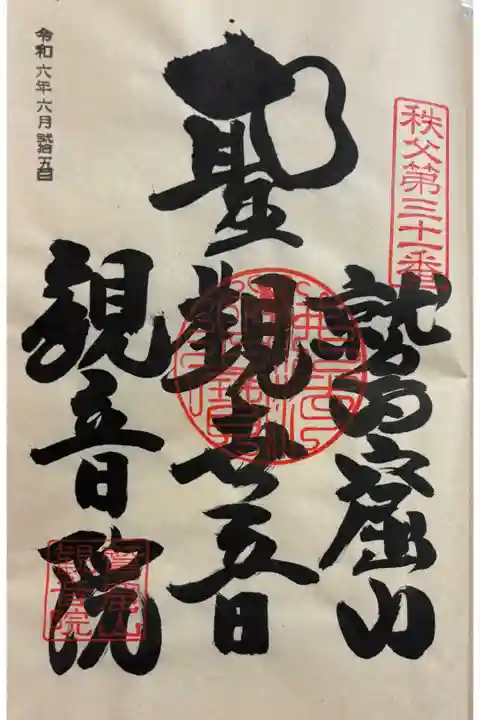 秩父第三十一番
鷲窟山
聖観世音
観音院
令和六年六月弐拾五日